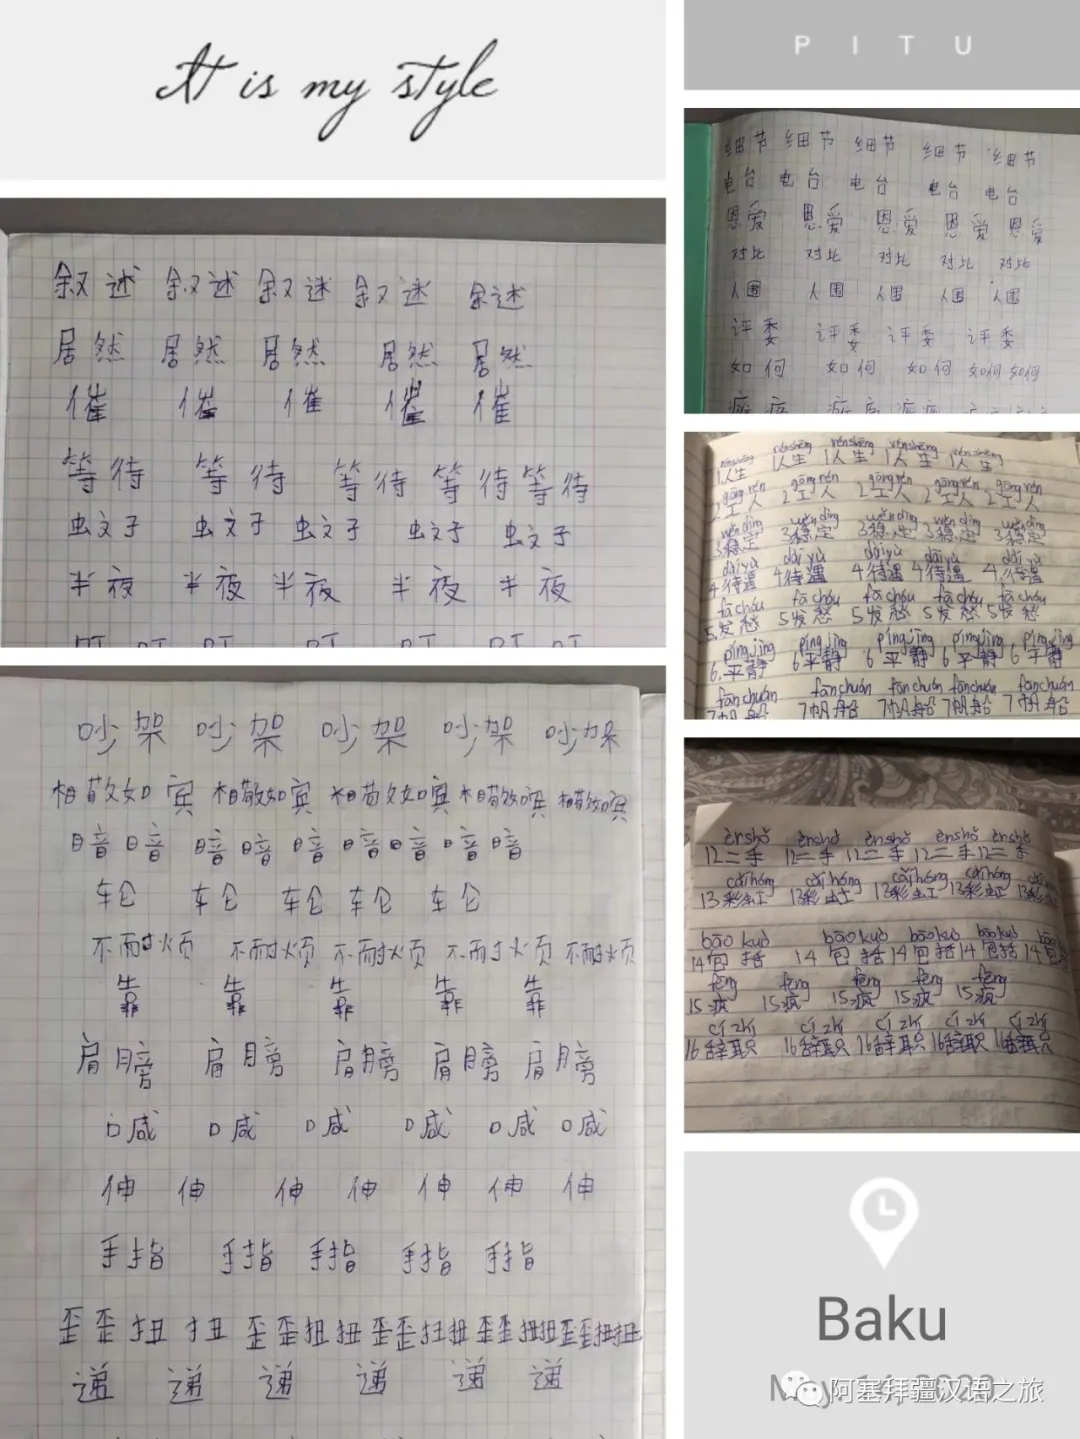 It is my style
PITU
叙述 叙述 叙述 叙述 叙述
居然 居然 居然 居然 居然
催 催 催 催 催
等待 等待 等待 等待 等待
蚊子 蚊子 蚊子 蚊子 蚊子
半夜 半夜 半夜 半夜 半夜
吵架 吵架 吵架 吵架 吵架
相敬如宾 相敬如宾 相敬如宾 相敬如宾 相敬如宾
暗暗 暗暗 暗暗 暗暗 暗暗
轮 轮 轮 轮 轮
不耐烦 不耐烦 不耐烦 不耐烦 不耐烦
靠 靠 靠 靠 靠
肩膀 肩膀 肩膀 肩膀 肩膀
喊 喊 喊 喊 喊 喊
伸 伸 伸 伸 伸 伸 伸
手指 手指 手指 手指 手指
歪歪扭扭 歪歪扭扭 歪歪扭扭 歪歪扭扭 歪歪扭扭
递 递 递 递 递 递
细节 细节 细节 细节 细节
电台 电台 电台 电台 电台
恩爱 恩爱 恩爱 恩爱 恩爱
对比 对比 对比 对比 对比
人围 人围 人围 人围 人围
评委 评委 评委 评委
如何 如何 如何 如何 如何
rénshēng rénshēng rénshēng rénshēng rénshēng
1人生 1人生 1人生 1人生 1人生
gōngrén gōngrén gōngrén gōngrén gōngrén
2工人 2工人 2工人 2工人 2工人
wěndìng wěndìng wěndìng wěndìng wěndìng
3稳定 3稳定 3稳定 3稳定 3稳定
dàiyù dàiyù dàiyù dàiyù dàiyù
4待遇 4待遇 4待遇 4待遇 4待遇
fāchóu fāchóu fāchóu fāchóu fāchóu
5发愁 5发愁 5发愁 5发愁 5发愁
píngjìng píngjìng píngjìng píngjìng píngjìng
6.平静 6平静 6平静 6平静 6平静
fānchuán fānchuán fānchuán fānchuán fānchuán
7帆船 7帆船 7帆船 7帆船 7帆船
èrshǒ èrshǒ èrshǒ èrshǒ èrshǒ
12二手 12二手 12二手 12二手 12二手
cǎihóng cǎihóng cǎihóng cǎihóng cǎihóng
13彩虹 13彩虹 13彩虹 13彩虹 13彩虹
bāokuò bāokuò bāokuò bāokuò
14包括 14包括 14包括 14包括 14包
fēng fēng fēng fēng fēng
15疯 15疯 15疯 15疯 15疯
cízhí cízhí cízhí cízhí cízhí
16辞职 16辞职 16辞职 16辞职 16辞职
Baku
阿塞拜疆汉语之旅